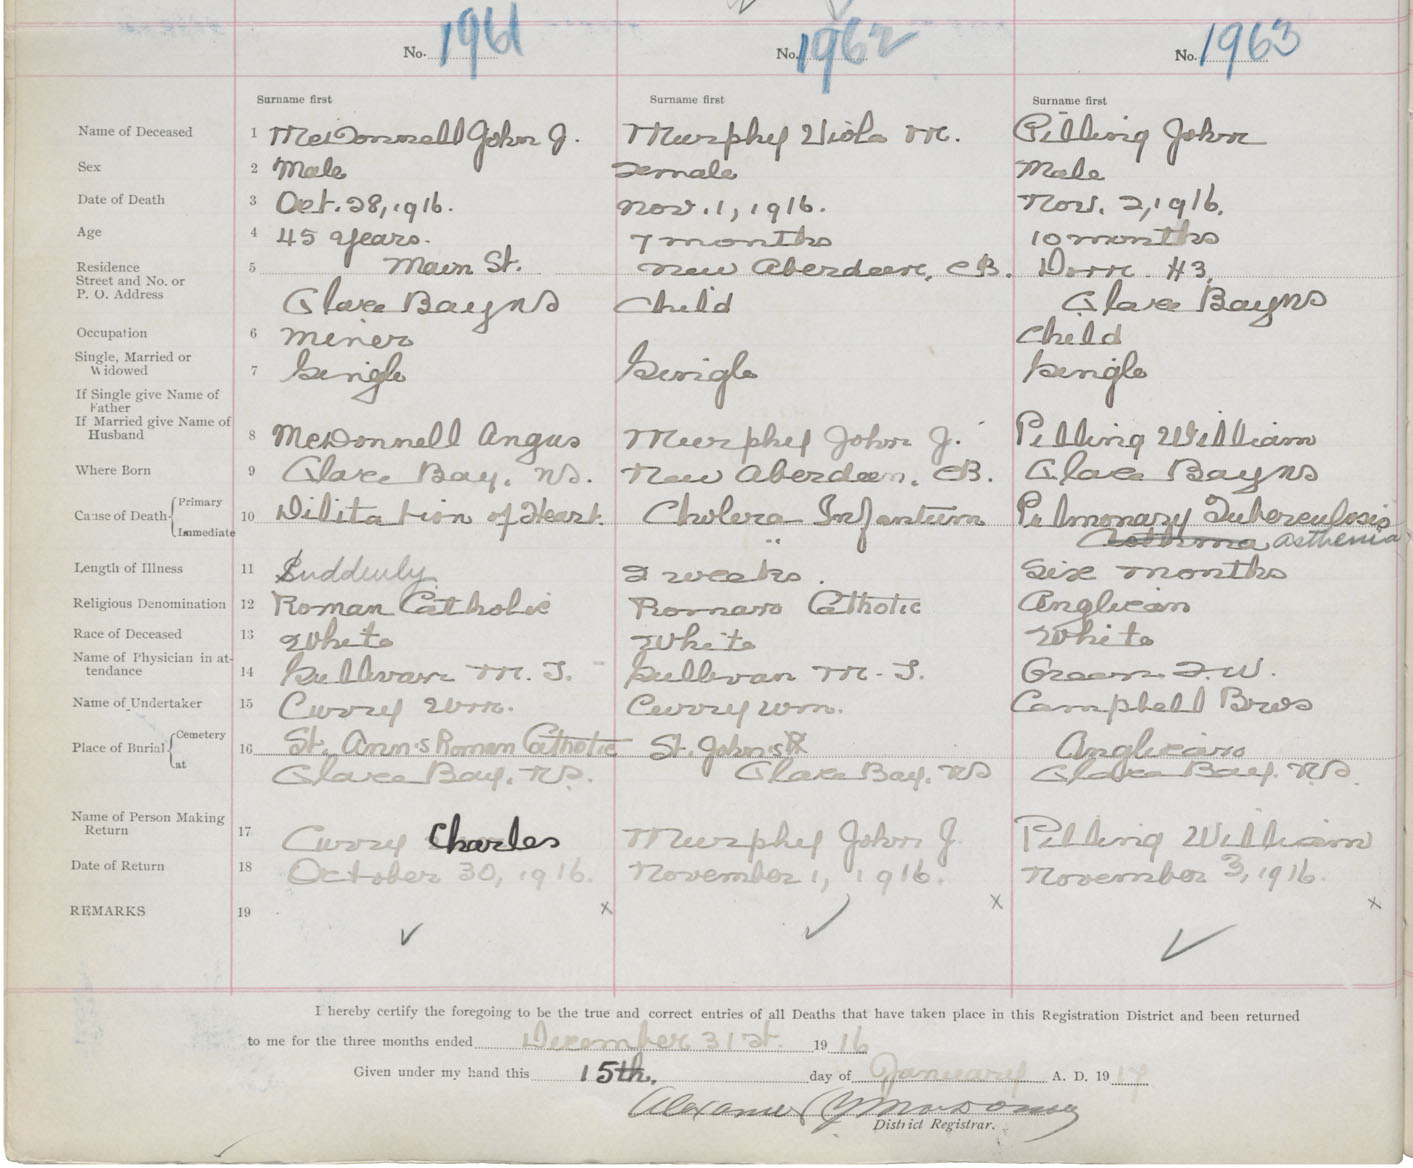 No. 1961 No. 1962 No. 1963
Surname first Surname first Surname first
Name of Deceased 1 McDonnell John J. Murphy Viola M. Pilling John
Sex 2 Male Female Male
Date of Death 3 Oct. 28, 1916. Nov. 1, 1916. Nov. 2, 1916.
Age 4 45 years. 7 months 10 months
Residence 5 Main St. New Aberdeen, CB. Dom. #3,
Street and No. or
P. O. Address Glace Bay NS Child Glace Bay NS
Occupation 6 Miner Child
Single, Married or
Widowed 7 Single Single Single
If Single give Name of
Father
If Married give Name of
Husband 8 McDonnell Angus Murphy John J. Pilling William
Where Born 9 Glace Bay, NS. New Aberdeen, CB. Glace Bay NS
Cause of Death { Primary
Immediate 10 Dilitation of Heart. Cholera Infantum Pulmonary Tuberculosis
" Asthma Asthenia
Length of Illness 11 Suddenly 2 weeks. Six months
Religious Denomination 12 Roman Catholic Roman Catholic Anglican
Race of Deceased 13 White White White
Name of Physician in at-
tendance 14 Sullivan M. T. Sullivan M. T. Green F. W.
Name of Undertaker 15 Curry Wm. Curry Wm. Campbell Bros
Place of Burial { Cemetery
at 16 St. Ann's Roman Catholic St. John's R Anglican
Glace Bay, NS. Glace Bay, NS Glace Bay, NS.
Name of Person Making
Return 17 Curry Charles Murphy John J. Pilling William
Date of Return 18 October 30, 1916. November 1, 1916. November 3, 1916.
REMARKS 19 x x x
I hereby certify the foregoing to be the true and correct entries of all Deaths that have taken place in this Registration District and been returned
to me for the three months ended December 31st. 1916
Given under my hand this 15th. day of January A. D. 1917
District Registrar.